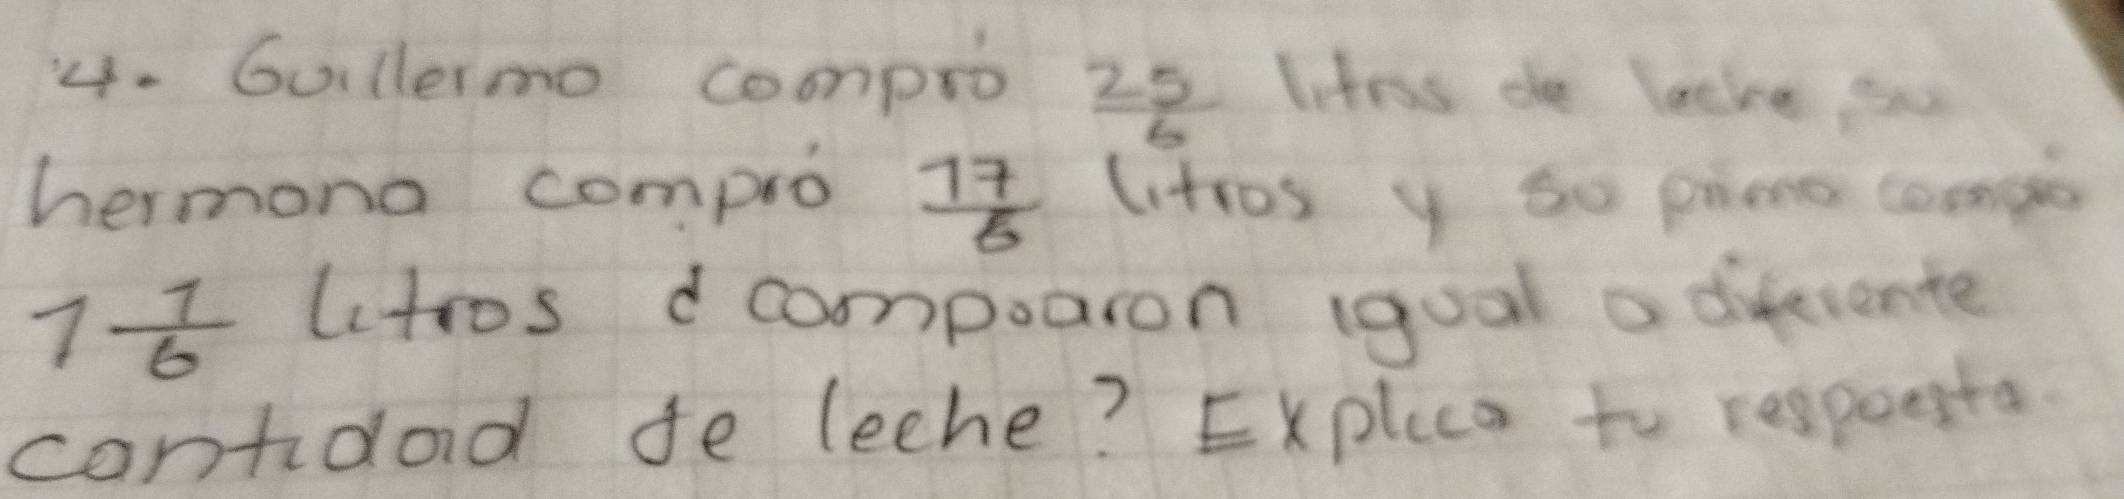 4. Guillermo compró 25/6 litros de leche, su
hermano compró 17/6 litros y su primo compró
1 1/6 litros ¿ compoaron igual o diferente
cantidad de leche? Explica tu respuesta.